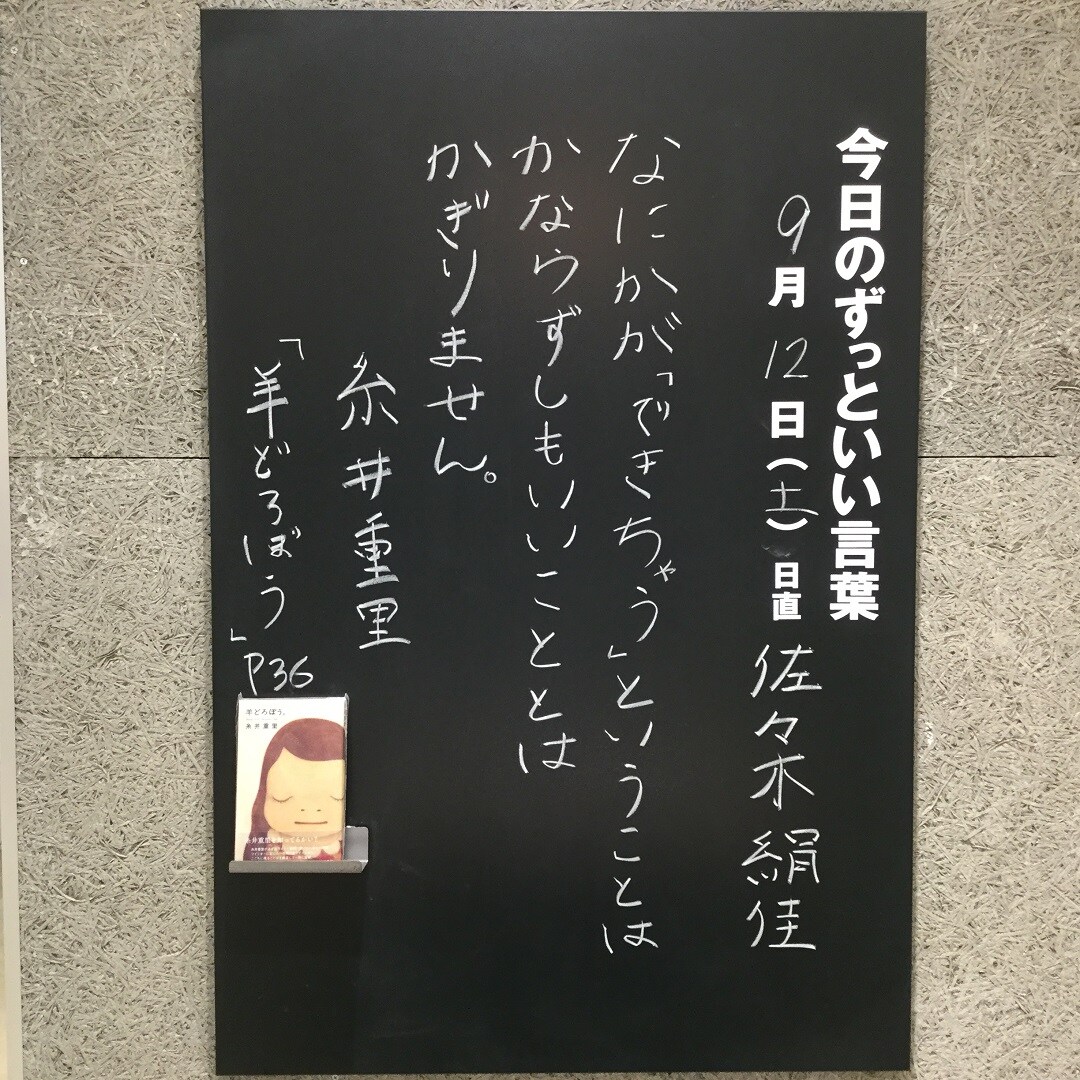 今日のずっといい言葉
9月12日(土)日直 佐々木絹佳
なにかが「できちゃう」ということは
かならずしもいいこととは
かぎりません。
糸井重里
「羊どろぼう」P36
羊どろぼう。
糸井重里